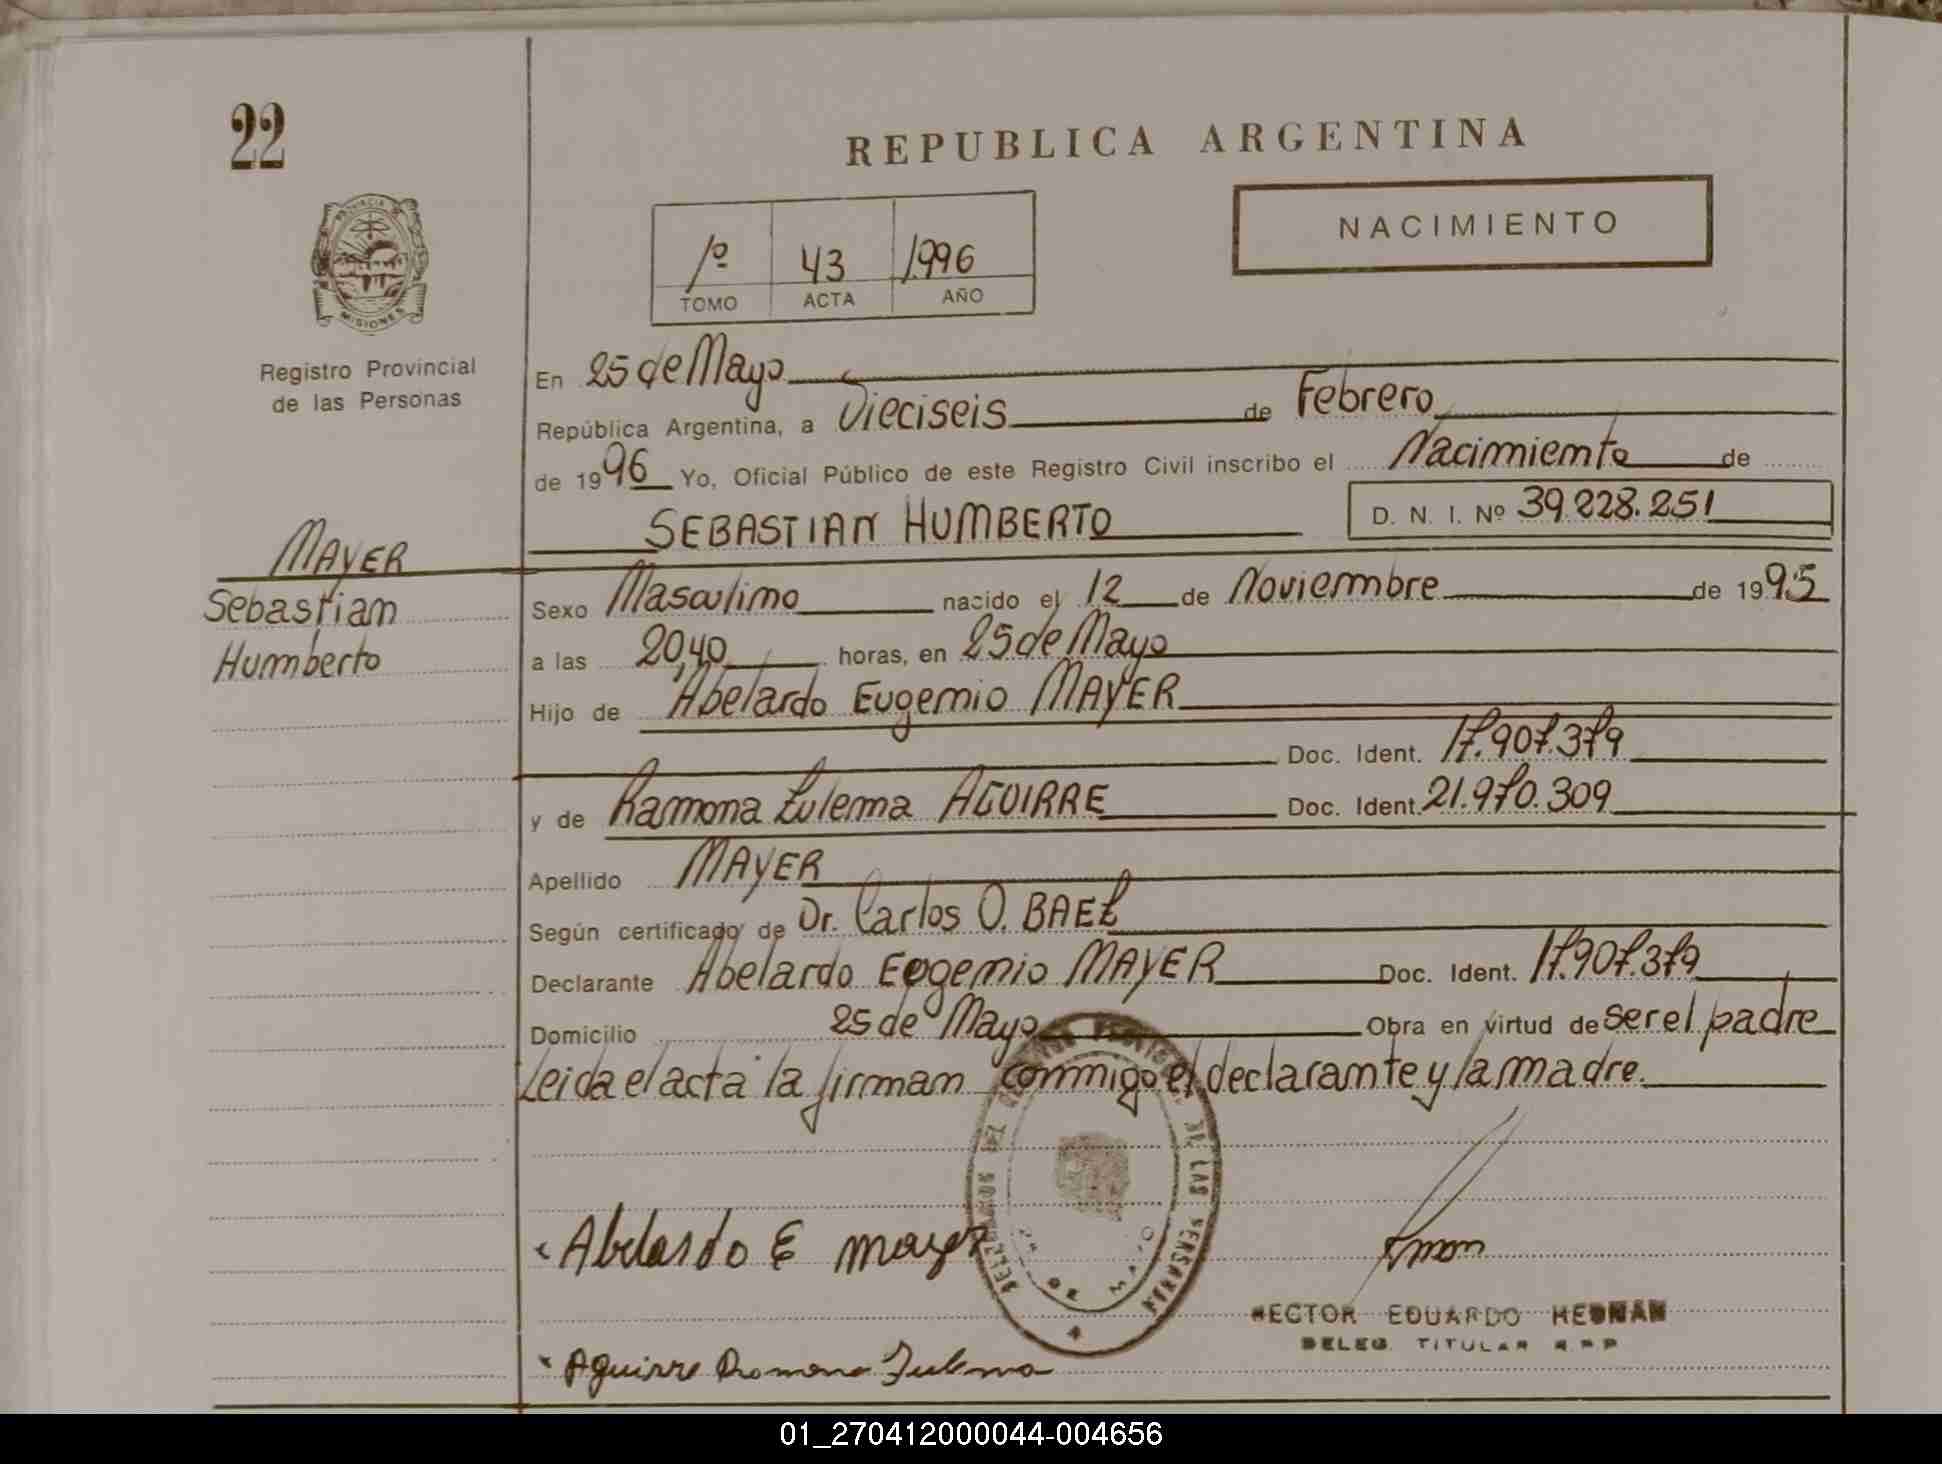 22
REPUBLICA ARGENTINA
NACIMIENTO
1º 43 1996
TOMO ACTA AÑO
PROVINCIA DE
MISIONES
Registro Provincial
de las Personas
En 25 de Mayo
República Argentina, a Dieciseis de Febrero
de 1996 Yo, Oficial Público de este Registro Civil inscribo el Nacimiento de
SEBASTIAN HUMBERTO D. N. I. Nº 39.228.251
MAYER
Sebastian
Humberto
Sexo Masculino nacido el 12 de Noviembre de 1995
a las 20,40 horas, en 25 de Mayo
Hijo de Abelardo Eugenio MAYER
Doc. Ident. 17.907.379
y de Ramona Zulema AGUIRRE Doc. Ident. 21.970.309
Apellido MAYER
Según certificado de Dr. Carlos O. BAEZ
Declarante Abelardo Eugenio MAYER Doc. Ident. 17.907.379
Domicilio 25 de Mayo Obra en virtud de ser el padre
Leida el acta la firman conmigo el declarante y la madre.
DE LAS PERSONAS
25 DE MAYO
Abelardo E Mayer
HECTOR EDUARDO
DELEG. TITULAR R.P.P
Aguirre Ramona Zulema
01_270412000044-004656